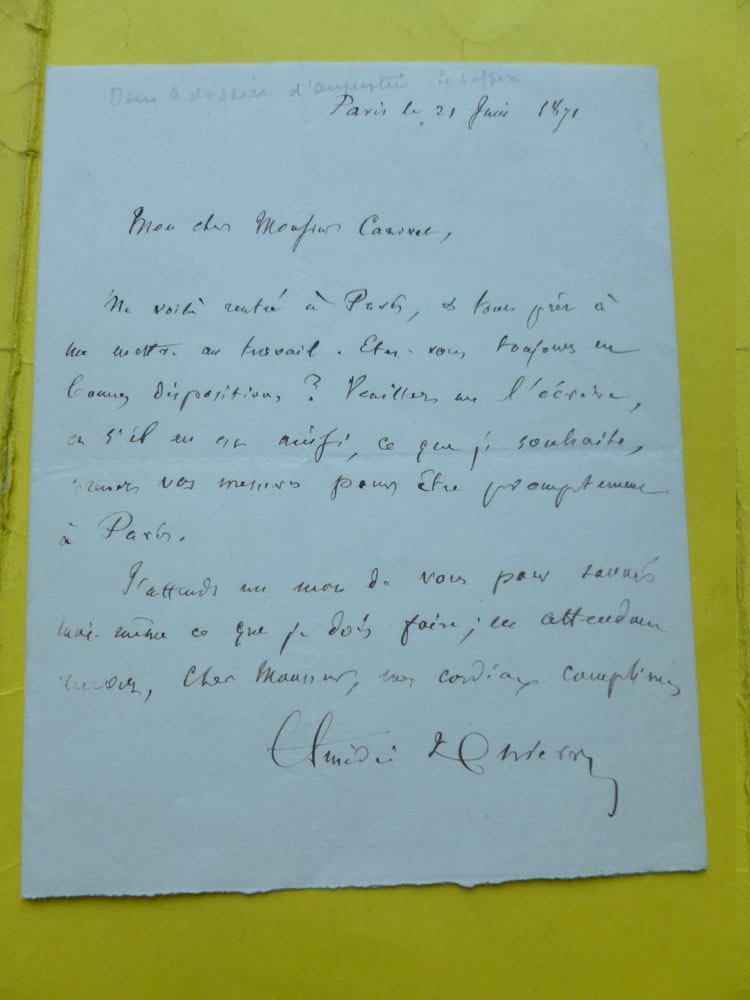 Dans le dossier d'augustin
Paris le 21 Juin 1871
Mon cher Monsieur
Me voilà rentré à Paris, & tous prêt à
me mettre au travail. Etes-vous toujours en
bonnes dispositions ? Veuillez me l'écrire,
et s'il en est ainsi, ce que je souhaite,
prenez vos mesures pour être promptement
à Paris.
J'attends un mot de vous pour savoir
moi-même ce que je dois faire ; en attendant
recevez, cher Monsieur, mes cordiaux compliments
Amédée Thierry